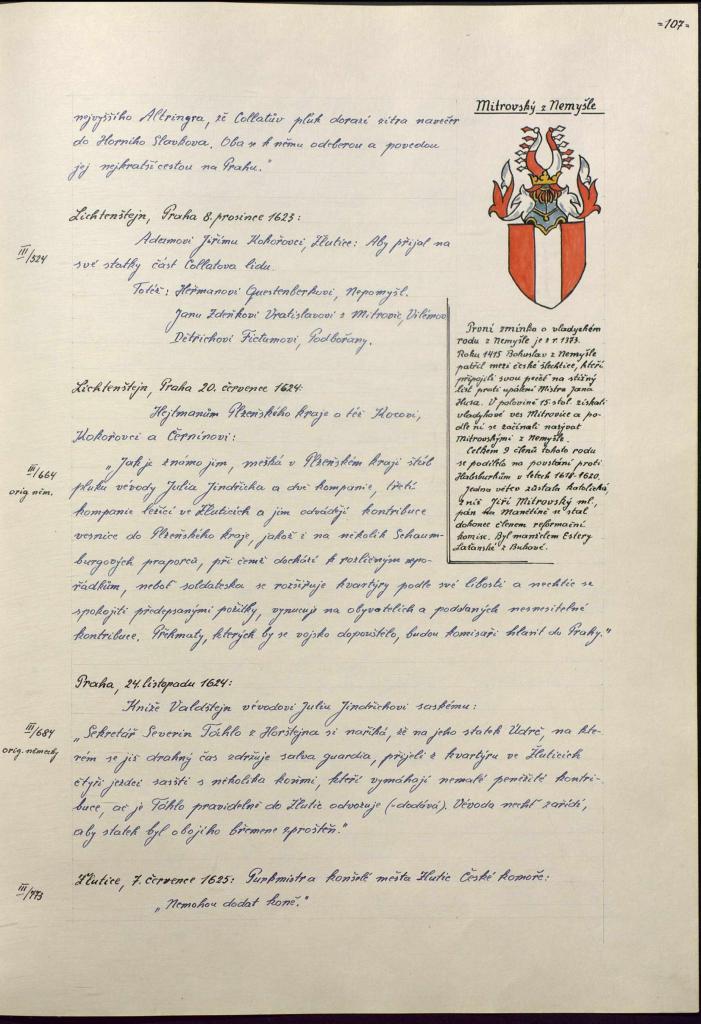 =107=
nejvyššího Altringra, že Collatův pluk dorazí zítra navečer
do Horního Slavkova. Oba se k němu odeberou a povedou
jej nejkratší cestou na Prahu."
Lichtenštejn, Praha 8. prosince 1623:
III/524
Adamovi Jiřímu Kokořovci, Žlutice: Aby přijal na
své statky část Collatova lidu.
Totéž: Heřmanovi Questenberkovi, Nepomyšl.
Janu Zdeňkovi Vratislavovi z Mitrovic, Vilémov
Dětřichovi Fictumovi, Podbořany.
Lichtenštejn, Praha 20. července 1624:
Hejtmanům Plzeňského kraje a též Kocovi,
Kokořovci a Černínovi:
III/664
orig. něm.
„Jak je známo jim, mešká v Plzeňském kraji štáb
pluku vévody Julia Jindřicha a dvě kompanie, třetí
kompanie ležící ve Žluticích a jim odvádějí kontribuce
vesnice do Plzeňského kraje, jakož i na několik Schaum-
burgových praporců, při čemž dochází k rozličným nepo-
řádkům, neboť soldateska se rozšiřuje kvartýry podle své libosti a nechtíc se
spokojiti předepsanými požitky, vynucují na obyvatelích a poddaných nesnesitelné
kontribuce. Přehmaty, kterých by se vojsko dopouštělo, budou komisaři hlásit do Prahy."
Praha, 24. listopadu 1624:
Kníže Valdštejn vévodovi Juliu Jindřichovi saskému:
III/684
orig. německy
„Sekretář Severin Táhlo z Horštejna si naříká, že na jeho statek Údrč, na kte-
rém se již drahný čas zdržuje salva guardia, přijeli z kvartýru ve Žluticích
čtyři jezdci sasští s několika koňmi, kteří vymáhají nemalé peněžité kontri-
buce, ač je Táhlo pravidelně do Žlutic odvozuje (-dodává). Vévoda nechť zařídí,
aby statek byl obojího břemene zproštěn."
III/773
Žlutice, 7. července 1625: Purkmistr a konšelé města Žlutic České komoře:
„Nemohou dodat koně."
Mitrovský z Nemyšle
První zmínka o vladyckém
rodu z Nemyšle je z r. 1373.
Roku 1415 Bohuslav z Nemyšle
patřil mezi české šlechtice, kteří
připojili svou pečeť na stížný
list proti upálení Mistra Jana
Husa. V polovině 15. stol. získali
vladykové ves Mitrovice a po-
dle ní se začínali nazývat
Mitrovskými z Nemyšle.
Celkem 9 členů tohoto rodu
se podílelo na povstání proti
Habsburkům v letech 1618-1620.
Jedna větev zůstala katolická,
z níž Jiří Mitrovský ml.,
pán na Manětíně se stal
dokonce členem reformační
komise. Byl manželem Estery
Lažanské z Bukové.